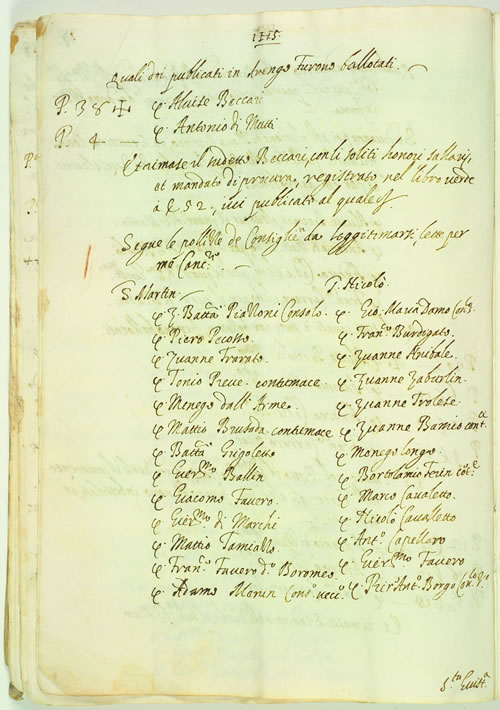 1715.
Quali dri publicati in Arengo furono ballotati.
P. 38 ę Aluise Beccari
P. 4 — ę Antonio di Mutti
Et rimase il sudetto Beccari, con li soliti honori, sallarij,
et mandato di procura, registrato nel libro verde
à 252, ivi publicato al quale
Segue le pollize de Consiglieri da leggitimarsi, lette per
me Canc.ro
S. Martin.
ę Z. Batta Pialloni Consolo.
ę Piero Pecotto.
ę Zuanne Trarato.
ę Tonio Pieve. contumace
ę Menego dall'Arme.
ę Mattio Brusada. contumace
ę Batta Grigoletto
ę Guer.mo Ballin
ę Giacomo Favero.
ę Guer.mo di Marchi
ę Mattio Tamiallo.
ę Fran.o Favero d.o Boromeo.
ę Adamo Marin Cons.o vecc.o
S. Nicolò.
ę Gio: Maria Damo Con.
ę Fran.o Burdigato.
ę Zuanne Anibale.
ę Zuanne Zaburlin.
ę Zuanne Trolese.
ę Zuanne Barrico cont.e
ę Monego longo.
ę Bortolamio Ferin cot.e
ę Marco Cavaletto.
ę Nicolò Cavalletto
ę Ant.o Capellaro
ę Guer.mo Favero
ę Pier Ant.o Borgo
S.ta Giust.a